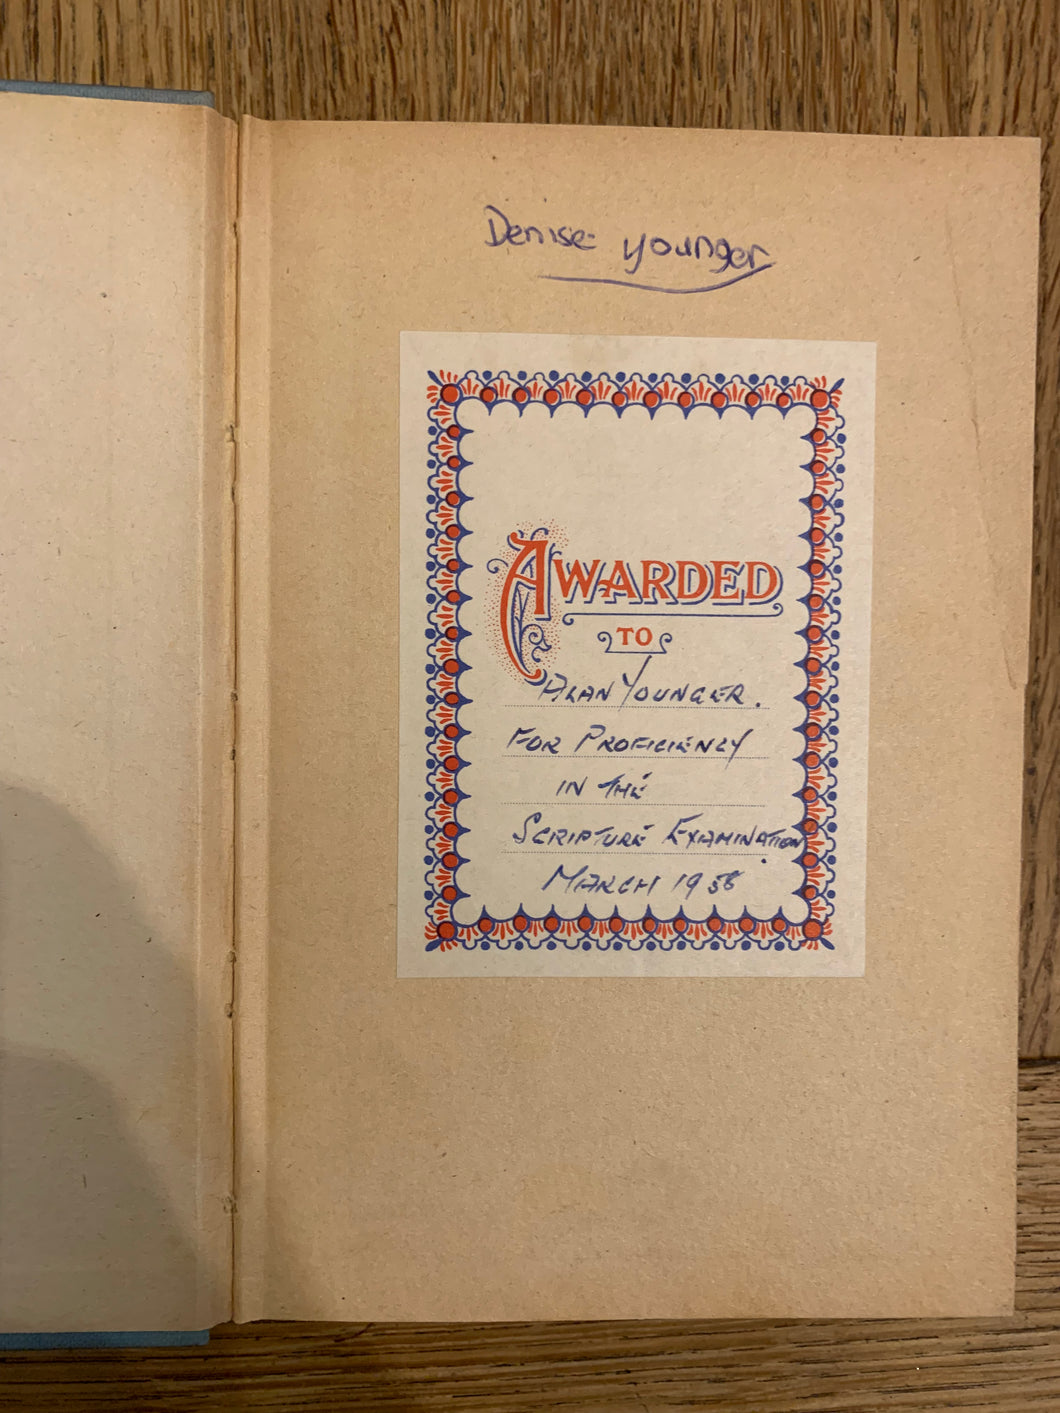 Denise younger
AWARDED
TO
ALAN YOUNGER.
FOR PROFICIENCY
IN THE
SCRIPTURE EXAMINATION.
MARCH 1958